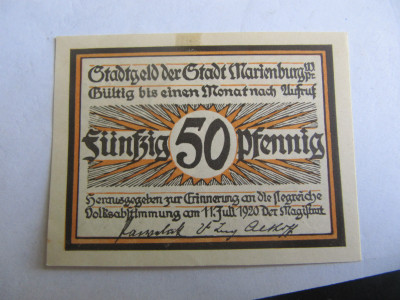 Stadtgeld der Stadt Marienburg W pr.
Gültig bis einen Monat nach Aufruf
Fünfzig 50 Pfennig
Herausgegeben zur Erinnerung an die siegreiche
Volksabstimmung am 11. Juli 1920 Der Magistrat